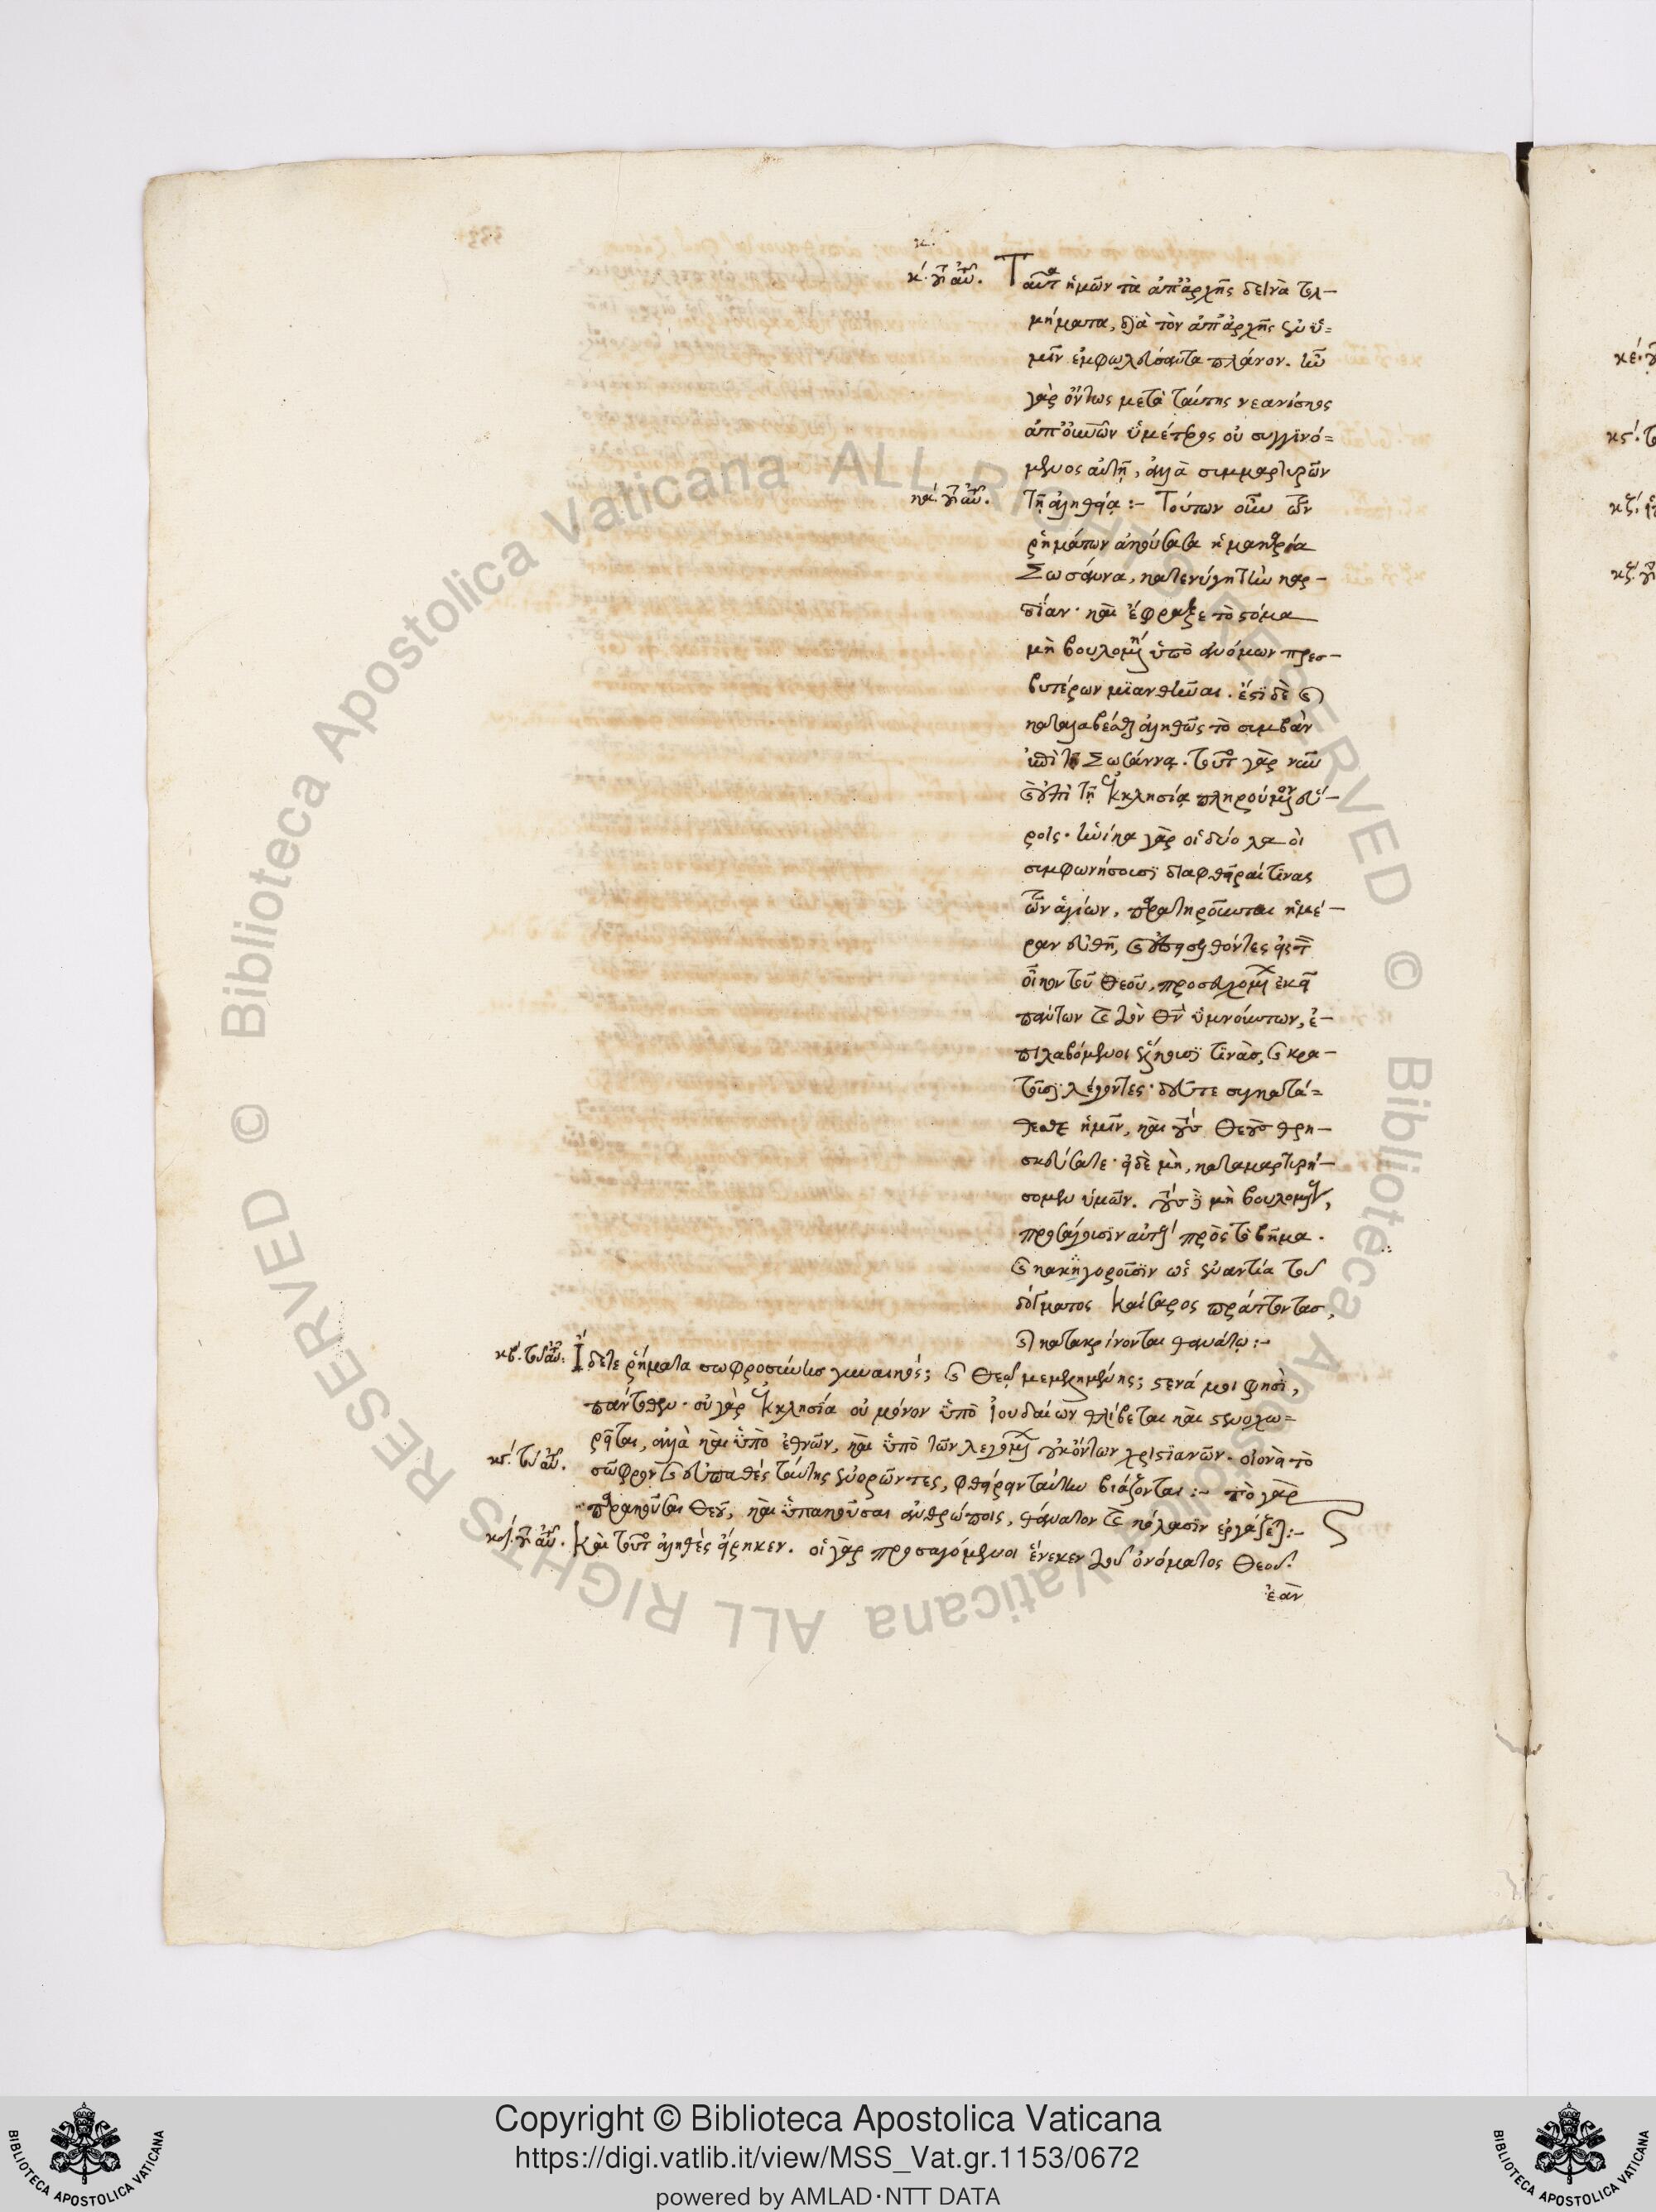 κ΄. τοῦ αὐτοῦ. Ταῦτα ἡμῶν τὰ ἀπ' ἀρχῆς δεινὰ τολ-
μήματα, διὰ τὸν ἀπ' ἀρχῆς ἐν ὑ-
μῖν ἐμφωλεύσαντα πλάνον. ἦν
γὰρ ὄντως μετὰ ταύτης νεανίσκος
ἀπ' οὐρανῶν ὑμέτερος οὐ συγγινό-
μενος αὐτῇ, ἀλλὰ συμμαρτυρῶν
κα΄. τοῦ αὐτοῦ. τῇ ἀληθείᾳ :- Τούτων οὖν τῶν
ῥημάτων ἀκούσασα ἡ μακαρία
Σωσάννα, κατενύγη τὴν καρ-
δίαν· καὶ ἔφραξε τὸ στόμα
μὴ βουλομένη ὑπὸ ἀνόμων πρεσ-
βυτέρων μιανθῆναι. ἔστι δὲ καὶ
καταλαβέσθαι ἀληθῶς τὸ συμβὰν
ἐπὶ τῇ Σωσάννᾳ. τοῦτο γὰρ νῦν
καὶ ἐπὶ τῇ ἐκκλησίᾳ πληρούμενον εὕ-
ροις. ἡνίκα γὰρ οἱ δύο λαοὶ
συμφωνήσουσι διαφθεῖραί τινας
τῶν ἁγίων, παρατηροῦνται ἡμέ-
ραν εὔθετον, καὶ ἐπεισελθόντες εἰς τὸν
οἶκον τοῦ Θεοῦ, προσευχομένων ἐκεῖ
πάντων καὶ τὸν Θν ὑμνούντων, ἐ-
πιλαβόμενοι ἕλκουσί τινας, καὶ κρα-
τοῦσι λέγοντες· δεῦτε συγκατά-
θεσθε ἡμῖν, καὶ τοὺς Θεοὺς θρη-
σκεύσατε· εἰ δὲ μὴ, καταμαρτυρή-
σομεν ὑμῶν. τούτων δὲ μὴ βουλομένων,
προσάγουσιν αὐτοὺς πρὸς τὸ βῆμα.
καὶ κατηγοροῦσιν ὡς ἐναντία τοῦ
δόγματος Καίσαρος πράττοντας,
καὶ κατακρίνονται θανάτῳ :-
κβ΄. τοῦ αὐτοῦ. Ἴδετε ῥήματα σώφρονος γυναικός; καὶ Θεῷ μεμελημένης; στενά μοι φησὶ,
πάντοθεν. ἡ γὰρ ἐκκλησία οὐ μόνον ὑπὸ Ἰουδαίων θλίβεται καὶ στενοχω-
ρεῖται, ἀλλὰ καὶ ὑπὸ ἐθνῶν, καὶ ὑπὸ τῶν λεγομένων οὐκ ὄντων χριστιανῶν.
κγ΄. τοῦ αὐτοῦ. σῶφρον καὶ εὐσταθὲς ταύτης ἐνορῶντες, φθείρειν ταύτην βιάζονται :- τὸ γὰρ
παρακοῦσαι Θεοῦ, καὶ ὑπακοῦσαι ἀνθρώποις, θάνατον καὶ κόλασιν ἐργάζεται :-
κδ΄. τοῦ αὐτοῦ. Καὶ τοῦτο ἀληθὲς εἴρηκεν. οἱ γὰρ προσαγόμενοι ἕνεκεν τοῦ ὀνόματος Θεοῦ.
ἐὰν
κε΄.
κϛ΄.
κζ΄.
Biblioteca Apostolica Vaticana ALL RIGHTS RESERVED © Biblioteca Apostolica Vaticana ALL RIGHTS RESERVED ©
Copyright © Biblioteca Apostolica Vaticana
https://digi.vatlib.it/view/MSS_Vat.gr.1153/0672
powered by AMLAD·NTT DATA
BIBLIOTECA APOSTOLICA VATICANA
BIBLIOTECA APOSTOLICA VATICANA